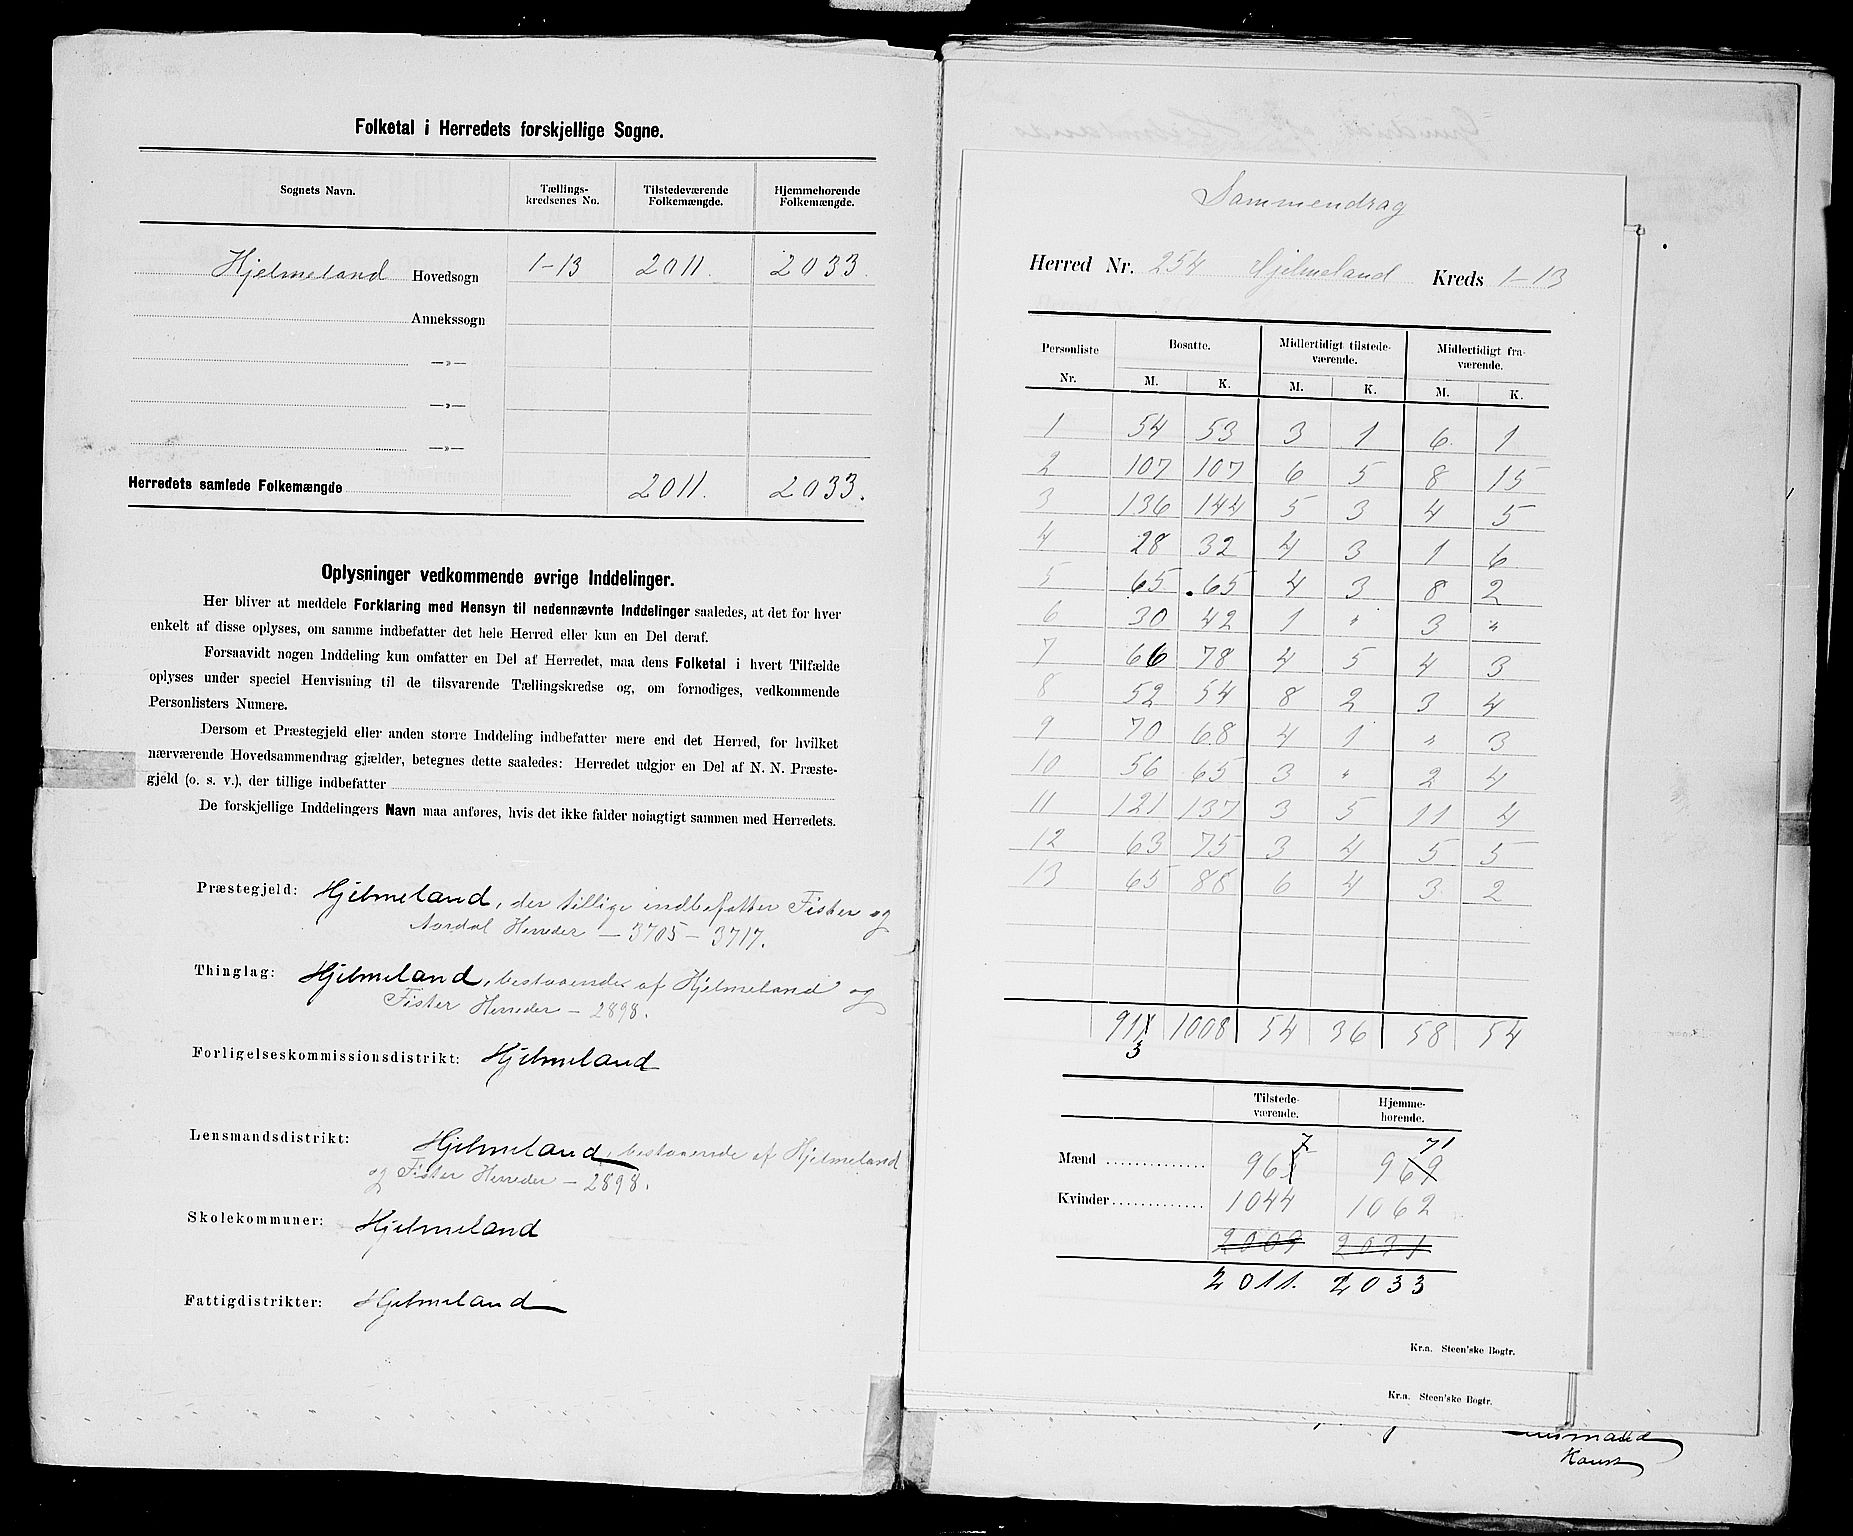 Folketal i Herredets forskjellige Sogne.
Sognets Navn. Tællings-kredsenes No. Tilstedeværende Folkemængde. Hjemmehørende Folkemængde.
Hjelmeland Hovedsogn 1-13 2011. 2033.
Annekssogn
—»—
—»—
—»—
Herredets samlede Folkemængde 2011. 2033.
Oplysninger vedkommende øvrige Inddelinger.
Her bliver at meddele Forklaring med Hensyn til nedennævnte Inddelinger saaledes, at det for hver
enkelt af disse oplyses, om samme indbefatter det hele Herred eller kun en Del deraf.
Forsaavidt nogen Inddeling kun omfatter en Del af Herredet, maa dens Folketal i hvert Tilfælde
oplyses under speciel Henvisning til de tilsvarende Tællingskredse og, om fornødiges, vedkommende
Personlisters Numere.
Dersom et Præstegjeld eller anden større Inddeling indbefatter mere end det Herred, for hvilket
nærværende Hovedsammendrag gjælder, betegnes dette saaledes: Herredet udgjør en Del af N. N. Præste-
gjeld (o. s. v.), der tillige indbefatter
De forskjellige Inddelingers Navn maa anføres, hvis det ikke falder nøiagtigt sammen med Herredets.
Præstegjeld: Hjelmeland, der tillige indbefatter Fister og
Aardal Herreder — 3705 — 3717.
Thinglag: Hjelmeland, bestaaende af Hjelmeland og
Fister Herreder — 2898.
Forligelseskommissionsdistrikt: Hjelmeland
Lensmandsdistrikt: Hjelmeland, bestaaende af Hjelmeland
og Fister Herreder — 2898.
Skolekommuner: Hjelmeland
Fattigdistrikter: Hjelmeland
Sammendrag
Herred Nr. 254 Hjelmeland Kreds 1-13
Personliste Nr. Bosatte. Midlertidigt tilstede-værende. Midlertidigt fra-værende.
M. K. M. K. M. K.
1 54 53 3 1 6. 1
2 107 107 6 5 8 15
3 136 144 5 3 4 5
4 28 32 4 3 1 6
5 65 .65 4 3 8 2
6 30 42 1 " 3 "
7 66 78 4 5 4 3
8 52 54 8 2 3 4
9 70 68 4 1 " 3
10 56 65 3 " 2 4
11 121 137 3 5 11 4
12 63 75 3 4 5 5
13 65 88 6 4 3 2
911 1008 54 36 58 54
3
Tilstede-værende. Hjemme-hørende.
7 71
Mænd 965 969
Kvinder 1044 1062
2009 2031
2011. 2033
Kr.a. Steen'ske Bogtr.
Kr.a. Steen'ske Bogtr.